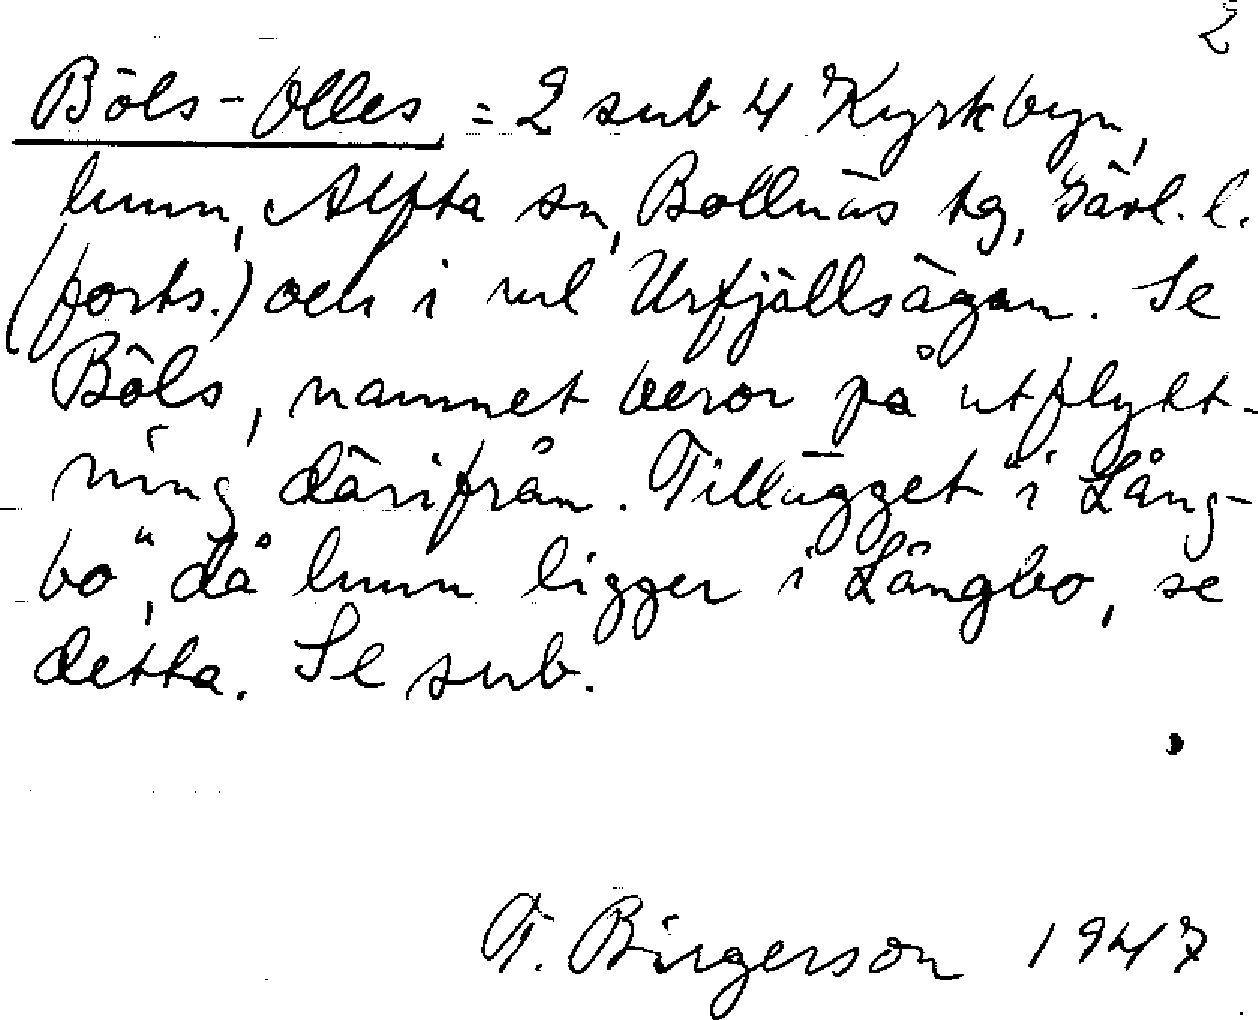 2
Böls-Olles = 2 sub 4 Kyrkbyn,
hmn, Alfta sn, Bollnäs tg, Gävl. l.
(forts.) och i ml Urfjällsägan. Se
Böls, namnet beror på utflytt-
ning därifrån. Tillägget "i Lång-
bo", då hmn ligger i Långbo, se
detta. Se sub.
T. Birgerson 1947